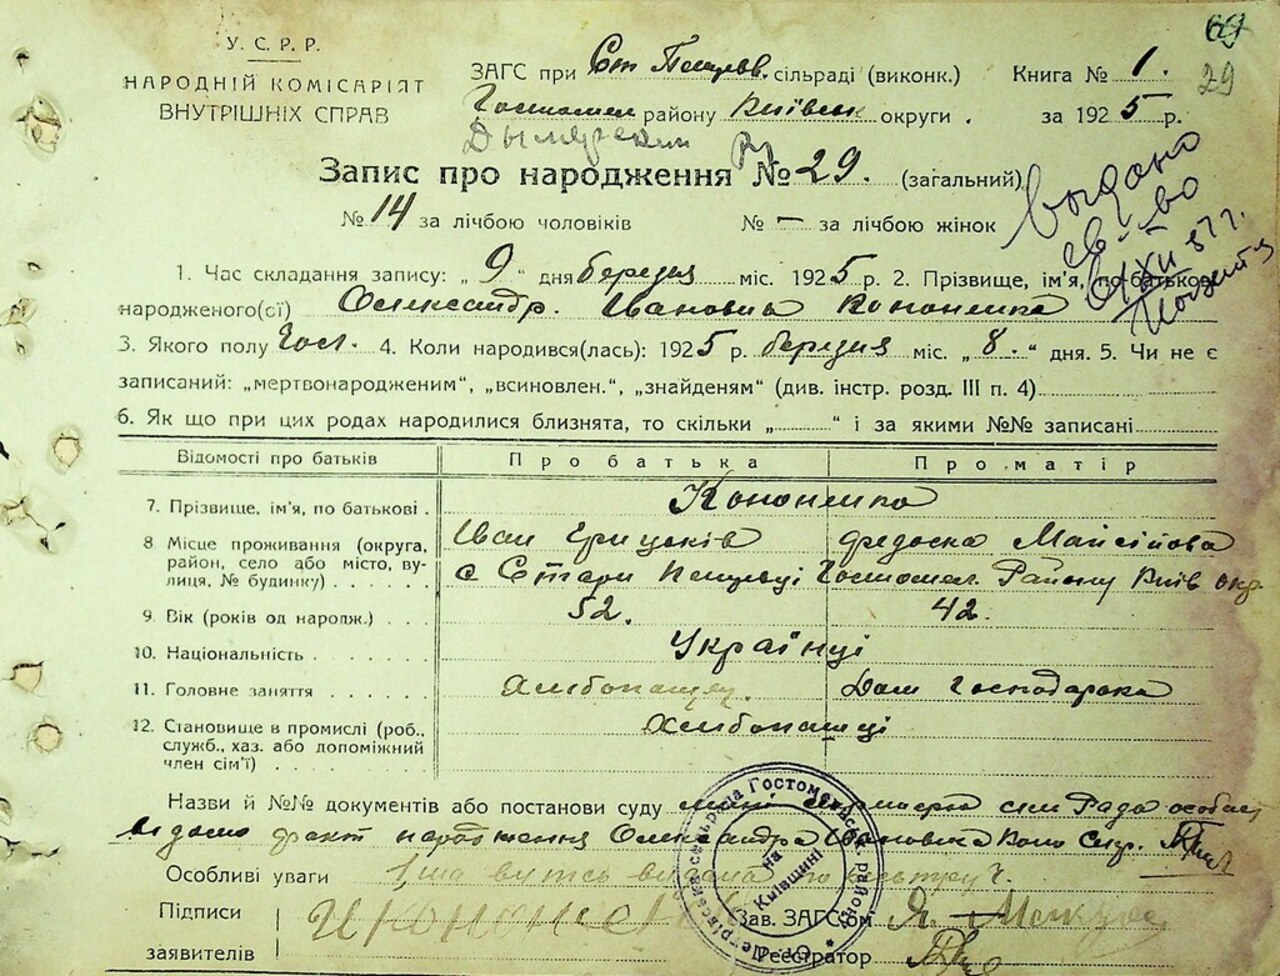 69
29
У. С. Р. Р.
НАРОДНІЙ КОМІСАРІЯТ
ВНУТРІШНІХ СПРАВ
ЗАГС при Ст Петрів. сільраді (виконк.) Книга № 1.
Гостомел району Київськ округи . за 1925 р.
Дымерський
Запис про народження № 29. (загальний)
№ 14 за лічбою чоловіків № – за лічбою жінок
Выдано
св-во
1. Час складання запису: „ 9 “ дня березня міс. 1925 р. 2. Прізвище, ім'я, по батькові
народженого(сі) Олександр. Іванович Кононенко
3. Якого полу Чол. 4. Коли народився(лась): 1925 р. березня міс. „ 8. “ дня. 5. Чи не є
записаний: „мертвонародженим“, „всиновлен.“, „знайденям“ (див. інстр. розд. III п. 4)
6. Як що при цих родах народилися близнята, то скільки „ “ і за якими №№ записані
Відомості про батьків Про батька Про матір
7. Прізвище, ім'я, по батькові . Кононенко
Іван Грицьків Федоска Мойсійова
8. Місце проживання (округа,
район, село або місто, ву-
лиця, № будинку) . . . . . с Стари Петрівці Гостомел. Району Київ окр
9. Вік (років од народж.) . . . 52. 42.
10. Національність . . . . . . . Українці
11. Головне заняття . . . . . . Хлібопашец. Дом Господарка
12. Становище в промислі (роб.,
служб., хаз. або допоміжний
член сім'ї) . . . . . . . . . Хлібопашці
Назви й №№ документів або постанови суду Рада
відомо факт народження Олександра Івановича Коно
Особливі уваги
Підписи
заявителів
Зав. ЗАГС'ом
Реєстратор
Ст. Петрівська сельрада Гостомельськ. району
на Київщині